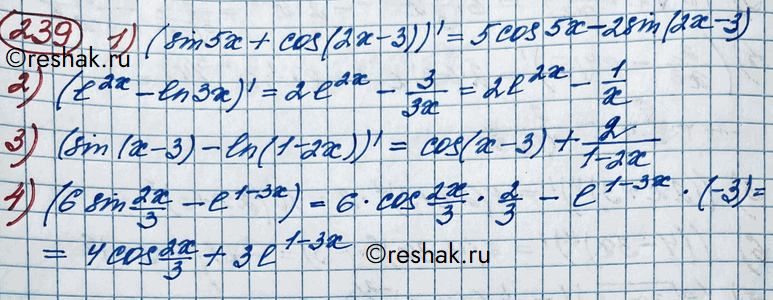 239 1) (sin5x + cos(2x-3))' = 5cos5x-2sin(2x-3)
2) (e^2x - ln3x)' = 2e^2x - 3/3x = 2e^2x - 1/x
©reshak.ru
3) (sin(x-3) - ln(1-2x))' = cos(x-3) + 2/(1-2x)
4) (6 sin 2x/3 - e^1-3x) = 6 · cos 2x/3 · 2/3 - e^1-3x · (-3) =
= 4cos 2x/3 + 3e^1-3x
©reshak.ru